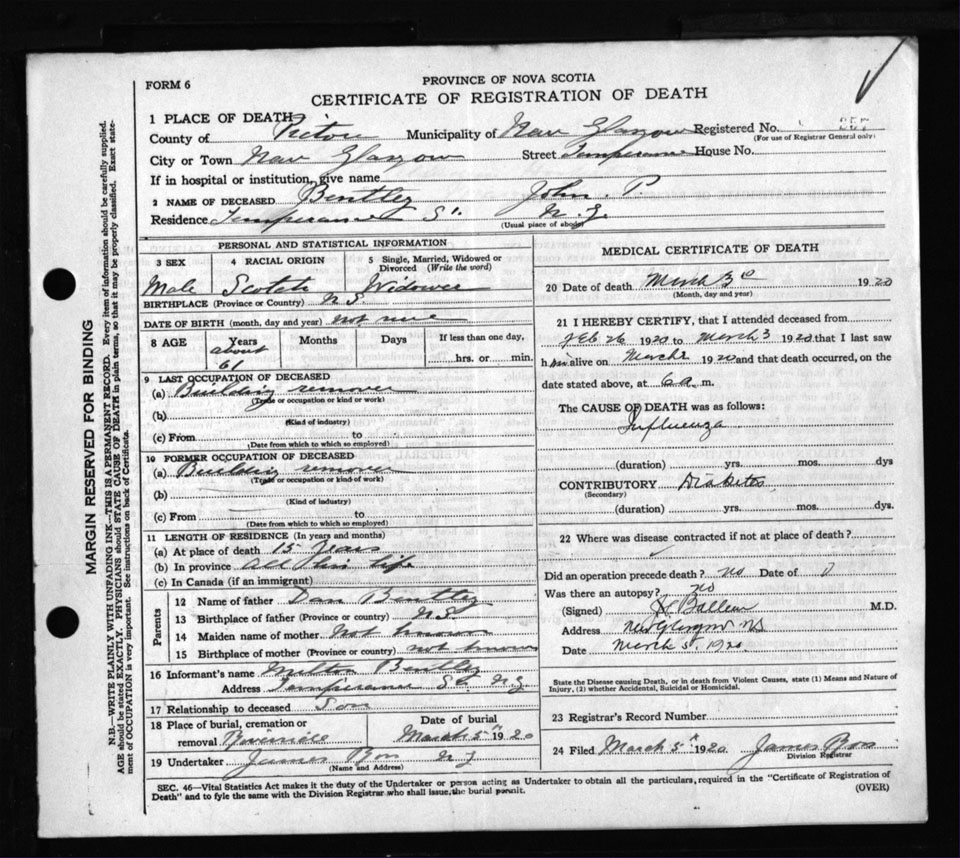 FORM 6
PROVINCE OF NOVA SCOTIA
CERTIFICATE OF REGISTRATION OF DEATH
1 PLACE OF DEATH
County of Pictou Municipality of New Glasgow Registered No.
(For use of Registrar General only)
City or Town New Glasgow Street Temperance House No.
If in hospital or institution, give name
2 NAME OF DECEASED Bentley John. P.
Residence Temperance St. N. G.
(Usual place of abode)
PERSONAL AND STATISTICAL INFORMATION
3 SEX 4 RACIAL ORIGIN 5 Single, Married, Widowed or Divorced (Write the word)
Male Scotch Widower
BIRTHPLACE (Province or Country) N S.
DATE OF BIRTH (month, day and year) not
8 AGE Years Months Days If less than one day,
about 61 hrs. or min.
9 LAST OCCUPATION OF DECEASED
(a) Building remover
(Trade or occupation or kind or work)
(b)
(Kind of industry)
(c) From to
(Date from which to which so employed)
10 FORMER OCCUPATION OF DECEASED
(a) Building remover
(Trade or occupation or kind of work)
(b)
(Kind of industry)
(c) From to
(Date from which to which so employed)
11 LENGTH OF RESIDENCE (In years and months)
(a) At place of death 15 years
(b) In province all his life
(c) In Canada (if an immigrant)
Parents
12 Name of father Dan Bentley
13 Birthplace of father (Province or country) N S.
14 Maiden name of mother Not known
15 Birthplace of mother (Province or country) not known
16 Informant's name Milton Bentley
Address Temperance St. N G
17 Relationship to deceased Son
18 Place of burial, cremation or removal Date of burial
March 5th 1920
19 Undertaker James N G
(Name and Address)
MEDICAL CERTIFICATE OF DEATH
20 Date of death March 3rd 1920
(Month, day and year)
21 I HEREBY CERTIFY, that I attended deceased from
Feb 26 1920 to March 3 1920 that I last saw
him alive on March 2 1920 and that death occurred, on the
date stated above, at 6 a. m.
The CAUSE OF DEATH was as follows:
Influenza
(duration) yrs. mos. dys
CONTRIBUTORY Diabetes
(Secondary)
(duration) yrs. mos. dys.
22 Where was disease contracted if not at place of death?
Did an operation precede death? no Date of
Was there an autopsy? no
(Signed) M.D.
Address New Glasgow NS
Date March 5, 1920.
State the Disease causing Death, or in Death from Violent Causes, state (1) Means and Nature of Injury, (2) whether Accidental, Suicidal or Homicidal.
23 Registrar's Record Number
24 Filed March 5th 1920 James
Division Registrar
SEC. 46—Vital Statistics Act makes it the duty of the Undertaker or person acting as Undertaker to obtain all the particulars, required in the "Certificate of Registration of
Death" and to fyle the same with the Division Registrar who shall issue the burial permit.
(OVER)
MARGIN RESERVED FOR BINDING
N.B.—WRITE PLAINLY WITH UNFADING INK—THIS IS A PERMANENT RECORD. Every item of information should be carefully supplied.
AGE should be stated EXACTLY. PHYSICIANS should STATE CAUSE OF DEATH in plain terms, so that it may be properly classified. Exact statement of OCCUPATION is very important. See instructions on back of Certificate.